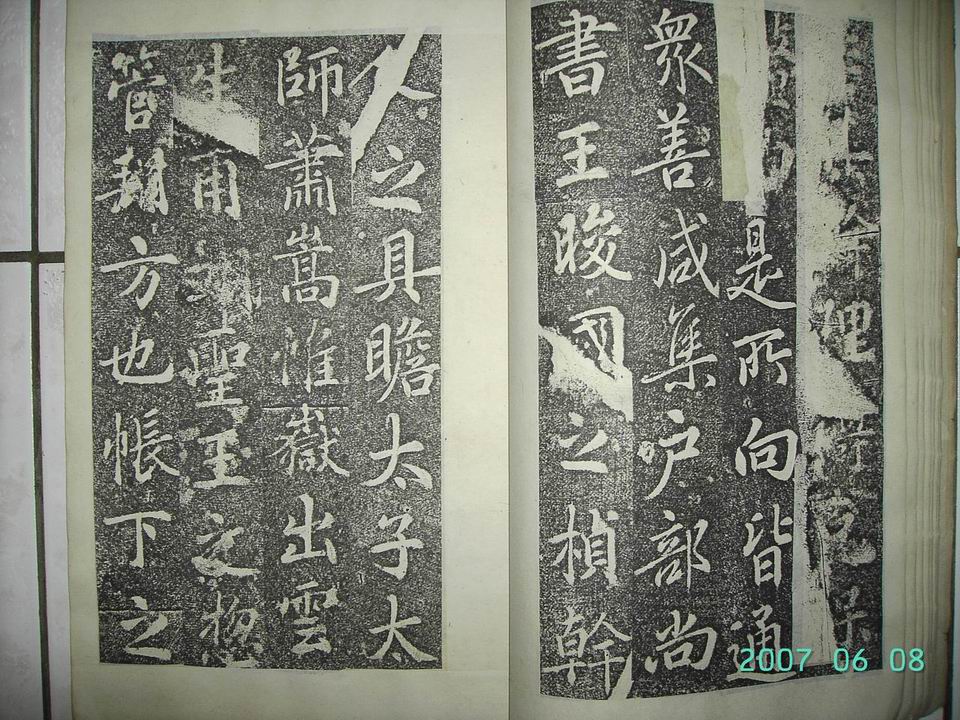 是所向皆通
衆善咸集户部尚
書王晙國之楨幹
人之具瞻太子太
師蕭嵩惟嶽出雲
生甫翊聖主之揔
管朔方也帳下之
2007 06 08